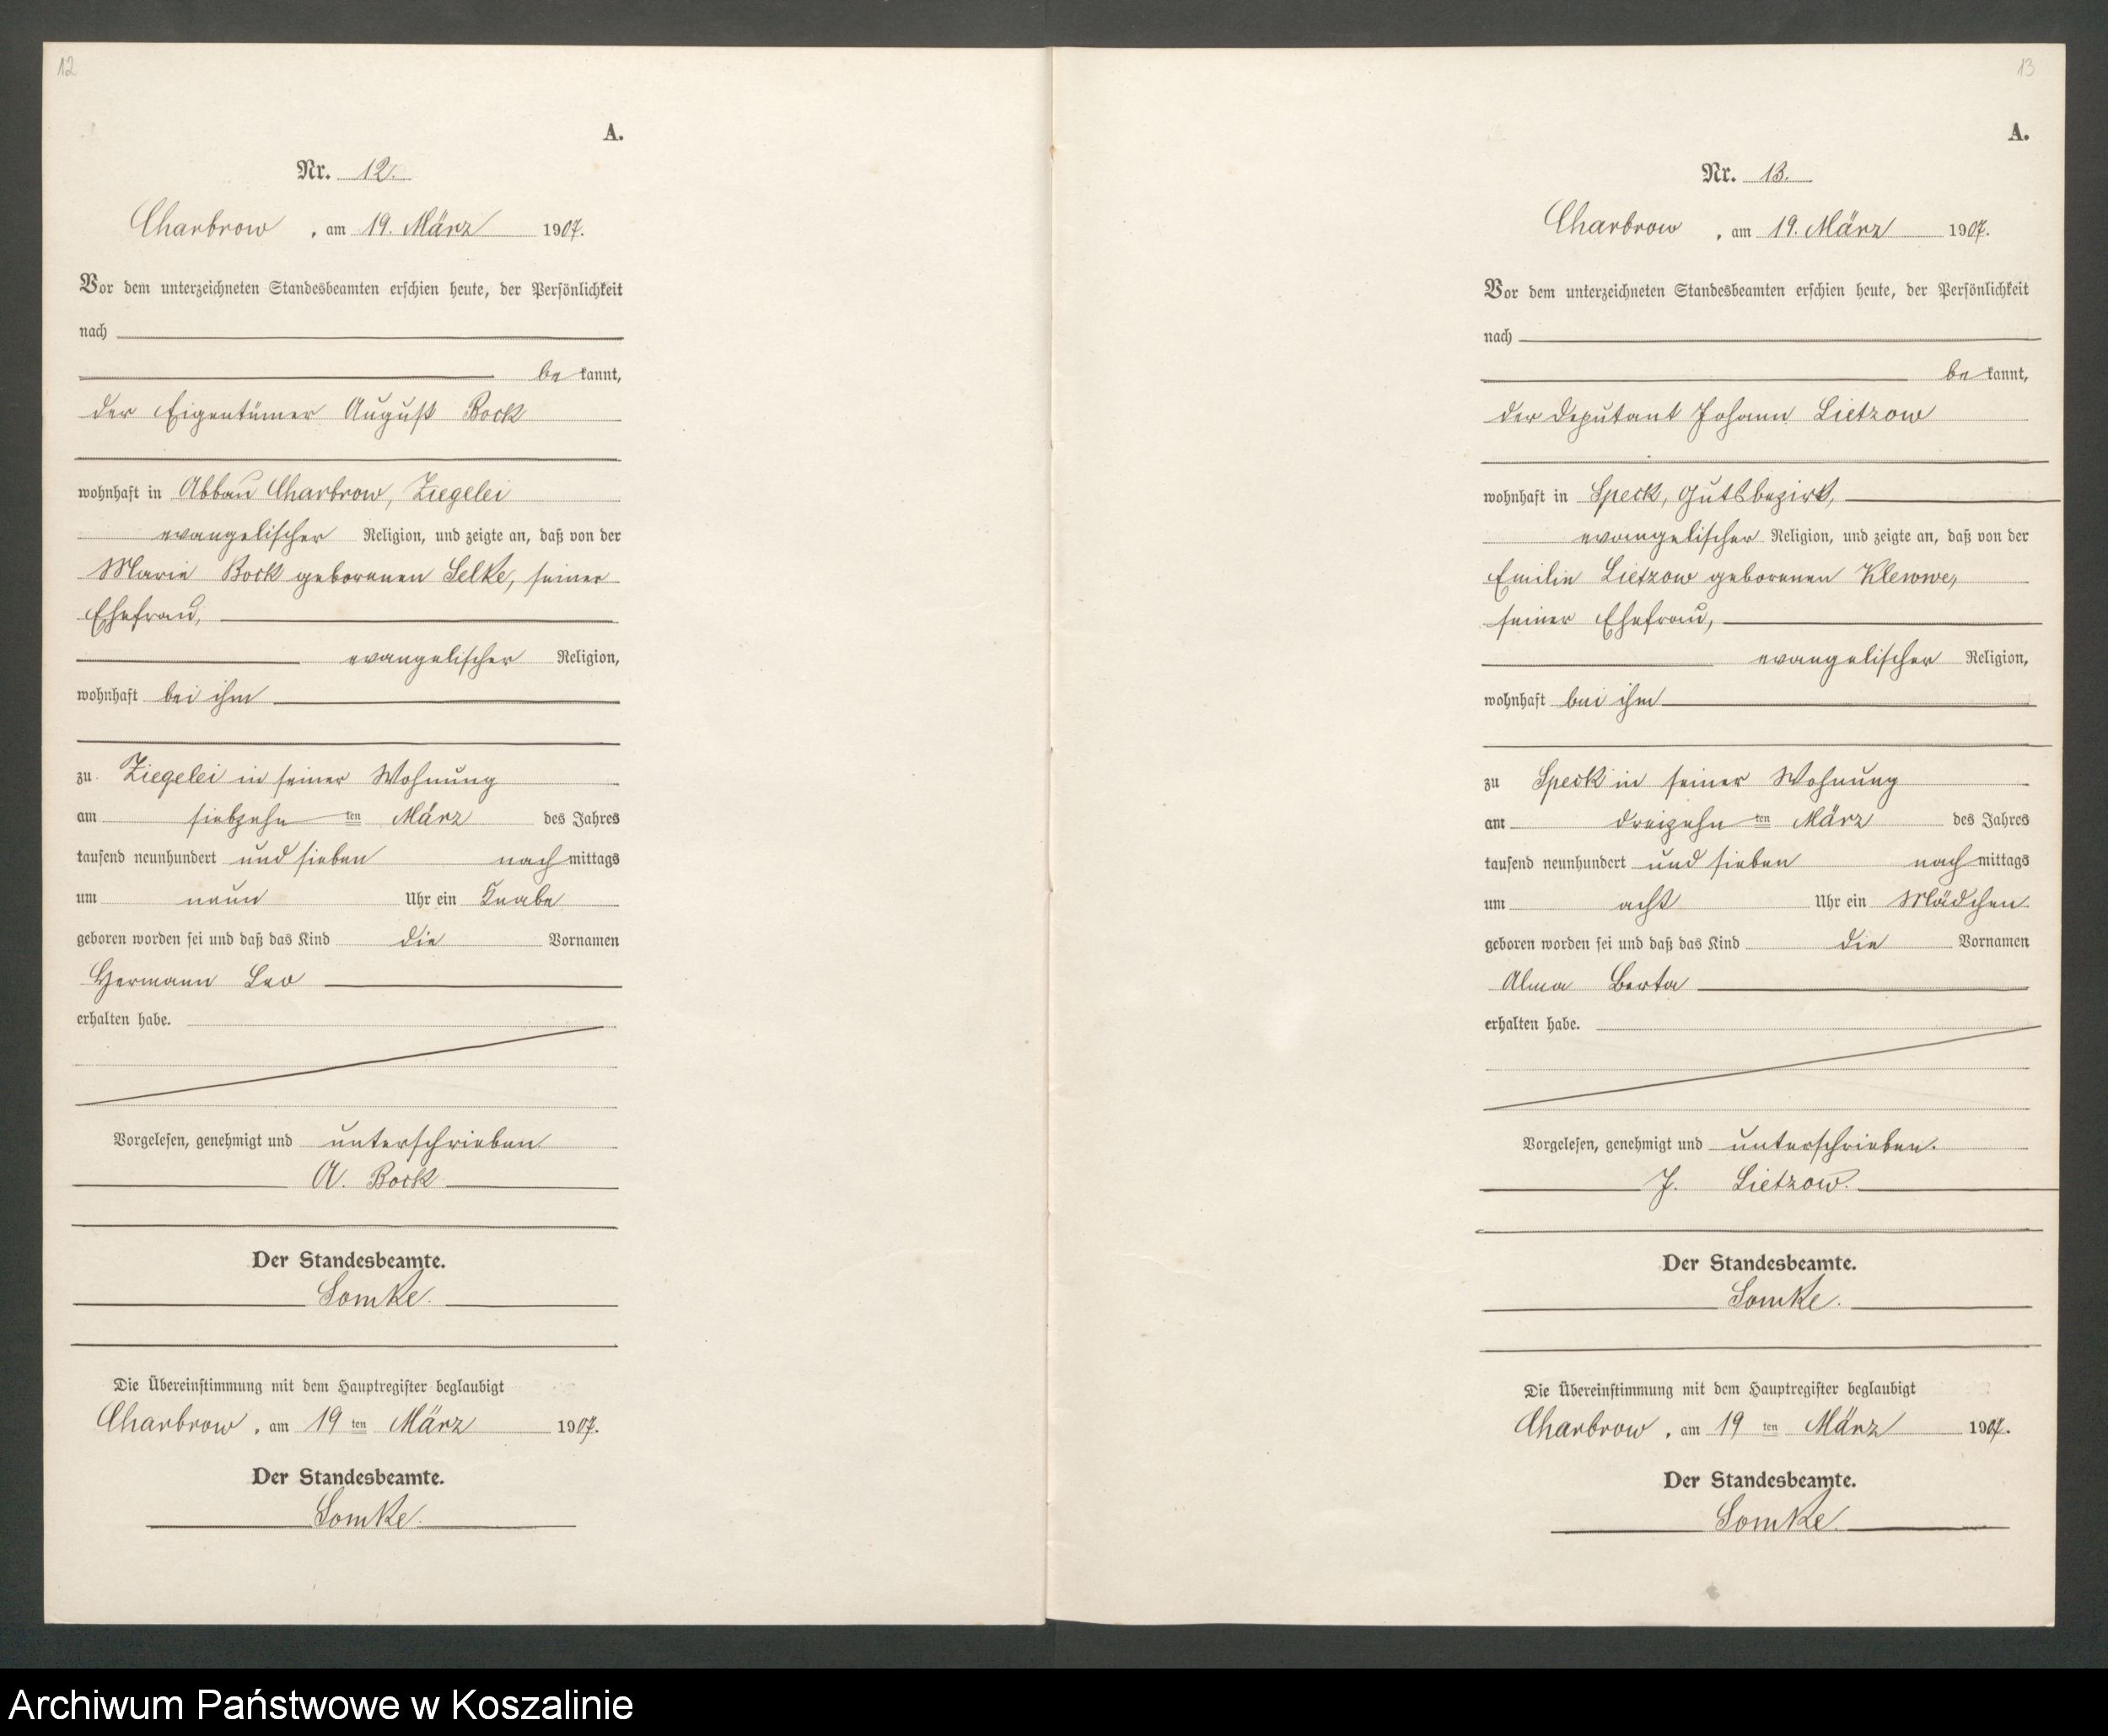 12
A.
Nr. 12.
Charbrow, am 19. März 1907.
Vor dem unterzeichneten Standesbeamten erschien heute, der Persönlichkeit
nach
bekannt,
der Eigentümer August Bock
wohnhaft in Abbau Charbrow, Ziegelei
evangelischer Religion, und zeigte an, daß von der
Marie Bock geborenen Selke, seiner
Ehefrau,
evangelischer Religion,
wohnhaft bei ihm
zu Ziegelei in seiner Wohnung
am siebzehn ten März des Jahres
tausend neunhundert und sieben nachmittags
um neun Uhr ein Knabe
geboren worden sei und daß das Kind die Vornamen
Hermann Leo
erhalten habe.
Vorgelesen, genehmigt und unterschrieben
A. Bock
Der Standesbeamte.
Somke.
Die Übereinstimmung mit dem Hauptregister beglaubigt
Charbrow, am 19 ten März 1907.
Der Standesbeamte.
Somke.
13
A.
Nr. 13.
Charbrow, am 19. März 1907.
Vor dem unterzeichneten Standesbeamten erschien heute, der Persönlichkeit
nach
bekannt,
der Deputant Johann Lietzow
wohnhaft in Speck, Gutsbezirk,
evangelischer Religion, und zeigte an, daß von der
Emilie Lietzow geborenen Klewwe,
seiner Ehefrau,
evangelischer Religion,
wohnhaft bei ihm
zu Speck in seiner Wohnung
am dreizehn ten März des Jahres
tausend neunhundert und sieben nachmittags
um acht Uhr ein Mädchen
geboren worden sei und daß das Kind die Vornamen
Alma Berta
erhalten habe.
Vorgelesen, genehmigt und unterschrieben.
J. Lietzow.
Der Standesbeamte.
Somke.
Die Übereinstimmung mit dem Hauptregister beglaubigt
Charbrow, am 19 ten März 1907.
Der Standesbeamte.
Somke.
Archiwum Państwowe w Koszalinie